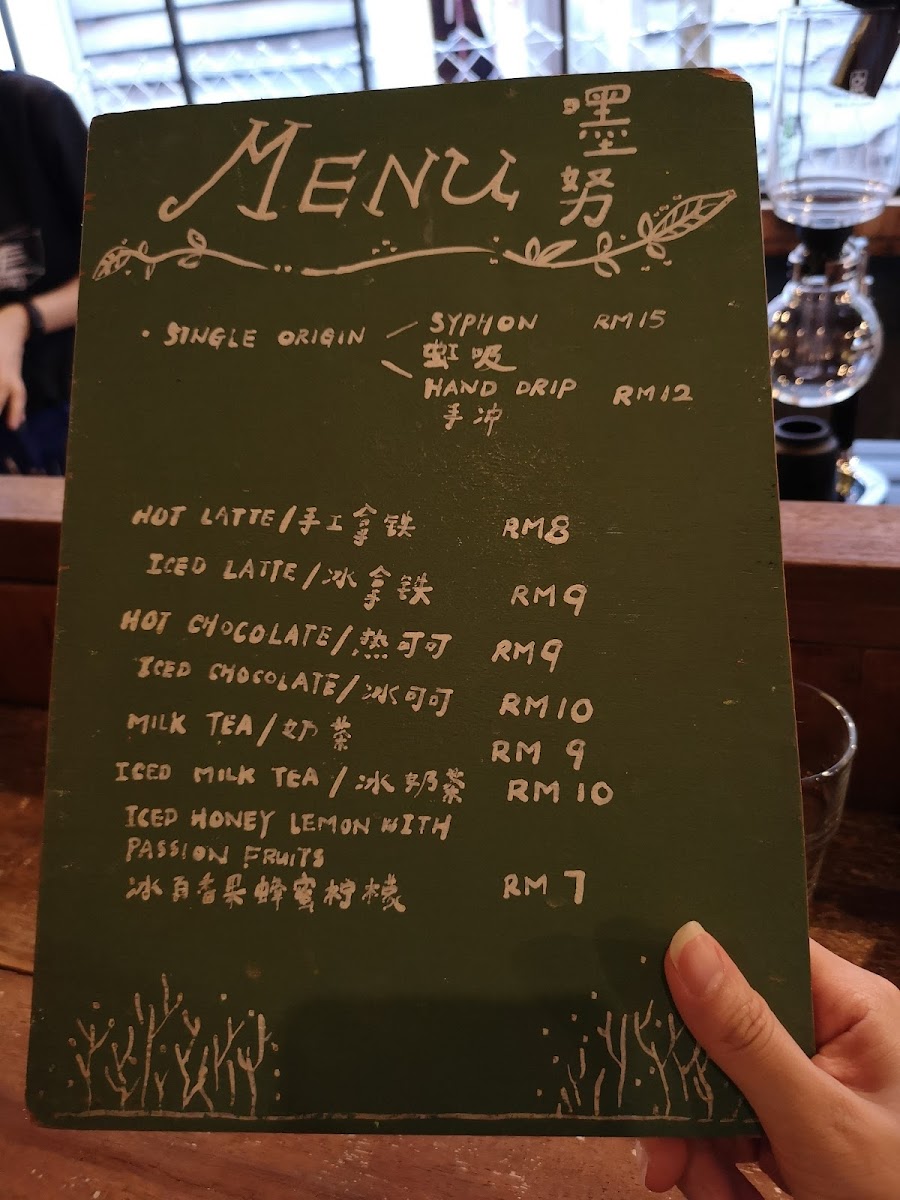 MENU 嘿努
• SINGLE ORIGIN SYPHON RM15
虹吸
HAND DRIP RM12
手冲
HOT LATTE/手工拿铁 RM8
ICED LATTE/冰拿铁 RM9
HOT CHOCOLATE/热可可 RM9
ICED CHOCOLATE/冰可可 RM10
MILK TEA/奶茶 RM 9
ICED MILK TEA/冰奶茶 RM 10
ICED HONEY LEMON WITH
PASSION FRUITS
冰百香果蜂蜜柠檬 RM 7